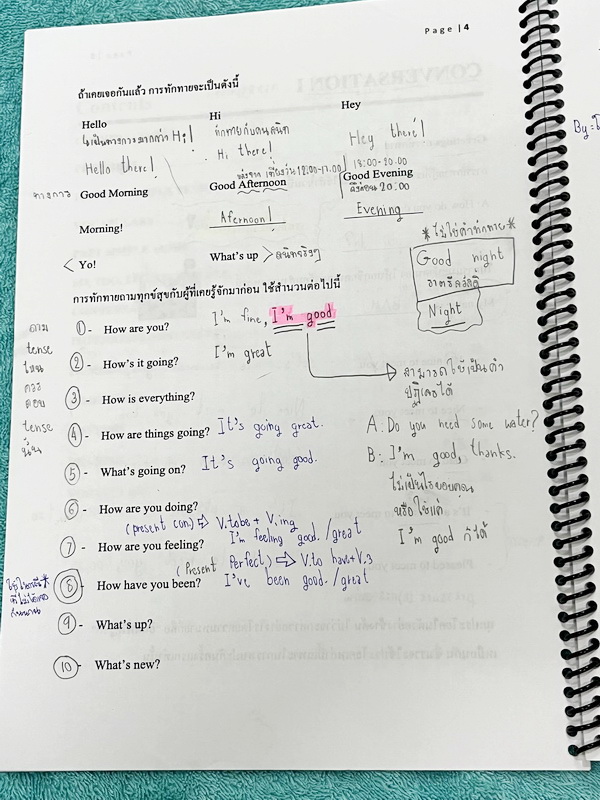 Page | 4
ถ้าเคยเจอกันแล้ว การทักทายจะเป็นดังนี้
Hello Hi Hey
ไม่เป็นทางการมากกว่า Hi! ทักทายกับคนสนิท Hey there!
Hello there! Hi there!
หลังจาก เที่ยงวัน 12:00-17.00 18:00-20.00
ทางการ Good Morning Good Afternoon Good Evening
ถึงก่อน 20:00
Morning! Afernoon! Evening
*ไม่ใช่คำทักทาย*
< Yo! What's up > สนิทจริงๆ
Good night
ราตรีสวัสดิ์
Night
การทักทายถามทุกข์สุขกับผู้ที่เคยรู้จักมาก่อน ใช้สำนวนต่อไปนี้
ถาม tense ไหน ควร ตอบ tense นั้น
1 - How are you? I'm fine, I'm good
2 - How's it going? I'm great
สามารถใช้เป็นคำ
ปฏิเสธได้
3 - How is everything?
4 - How are things going? It's going great.
A: Do you need some water?
5 - What's going on? It's going good.
B: I'm good, thanks.
ไม่เป็นไรขอบคุณ
6 - How are you doing?
หรือใช้แค่
(present con.) ⇒ V.tobe + V.ing
7 - How are you feeling? I'm feeling good. /great
I'm good ก็ได้
(Present Perfect) ⇒ V.to have+V.3
8 - How have you been? I've been good. /great
9 - What's up?
10 - What's new?
By: